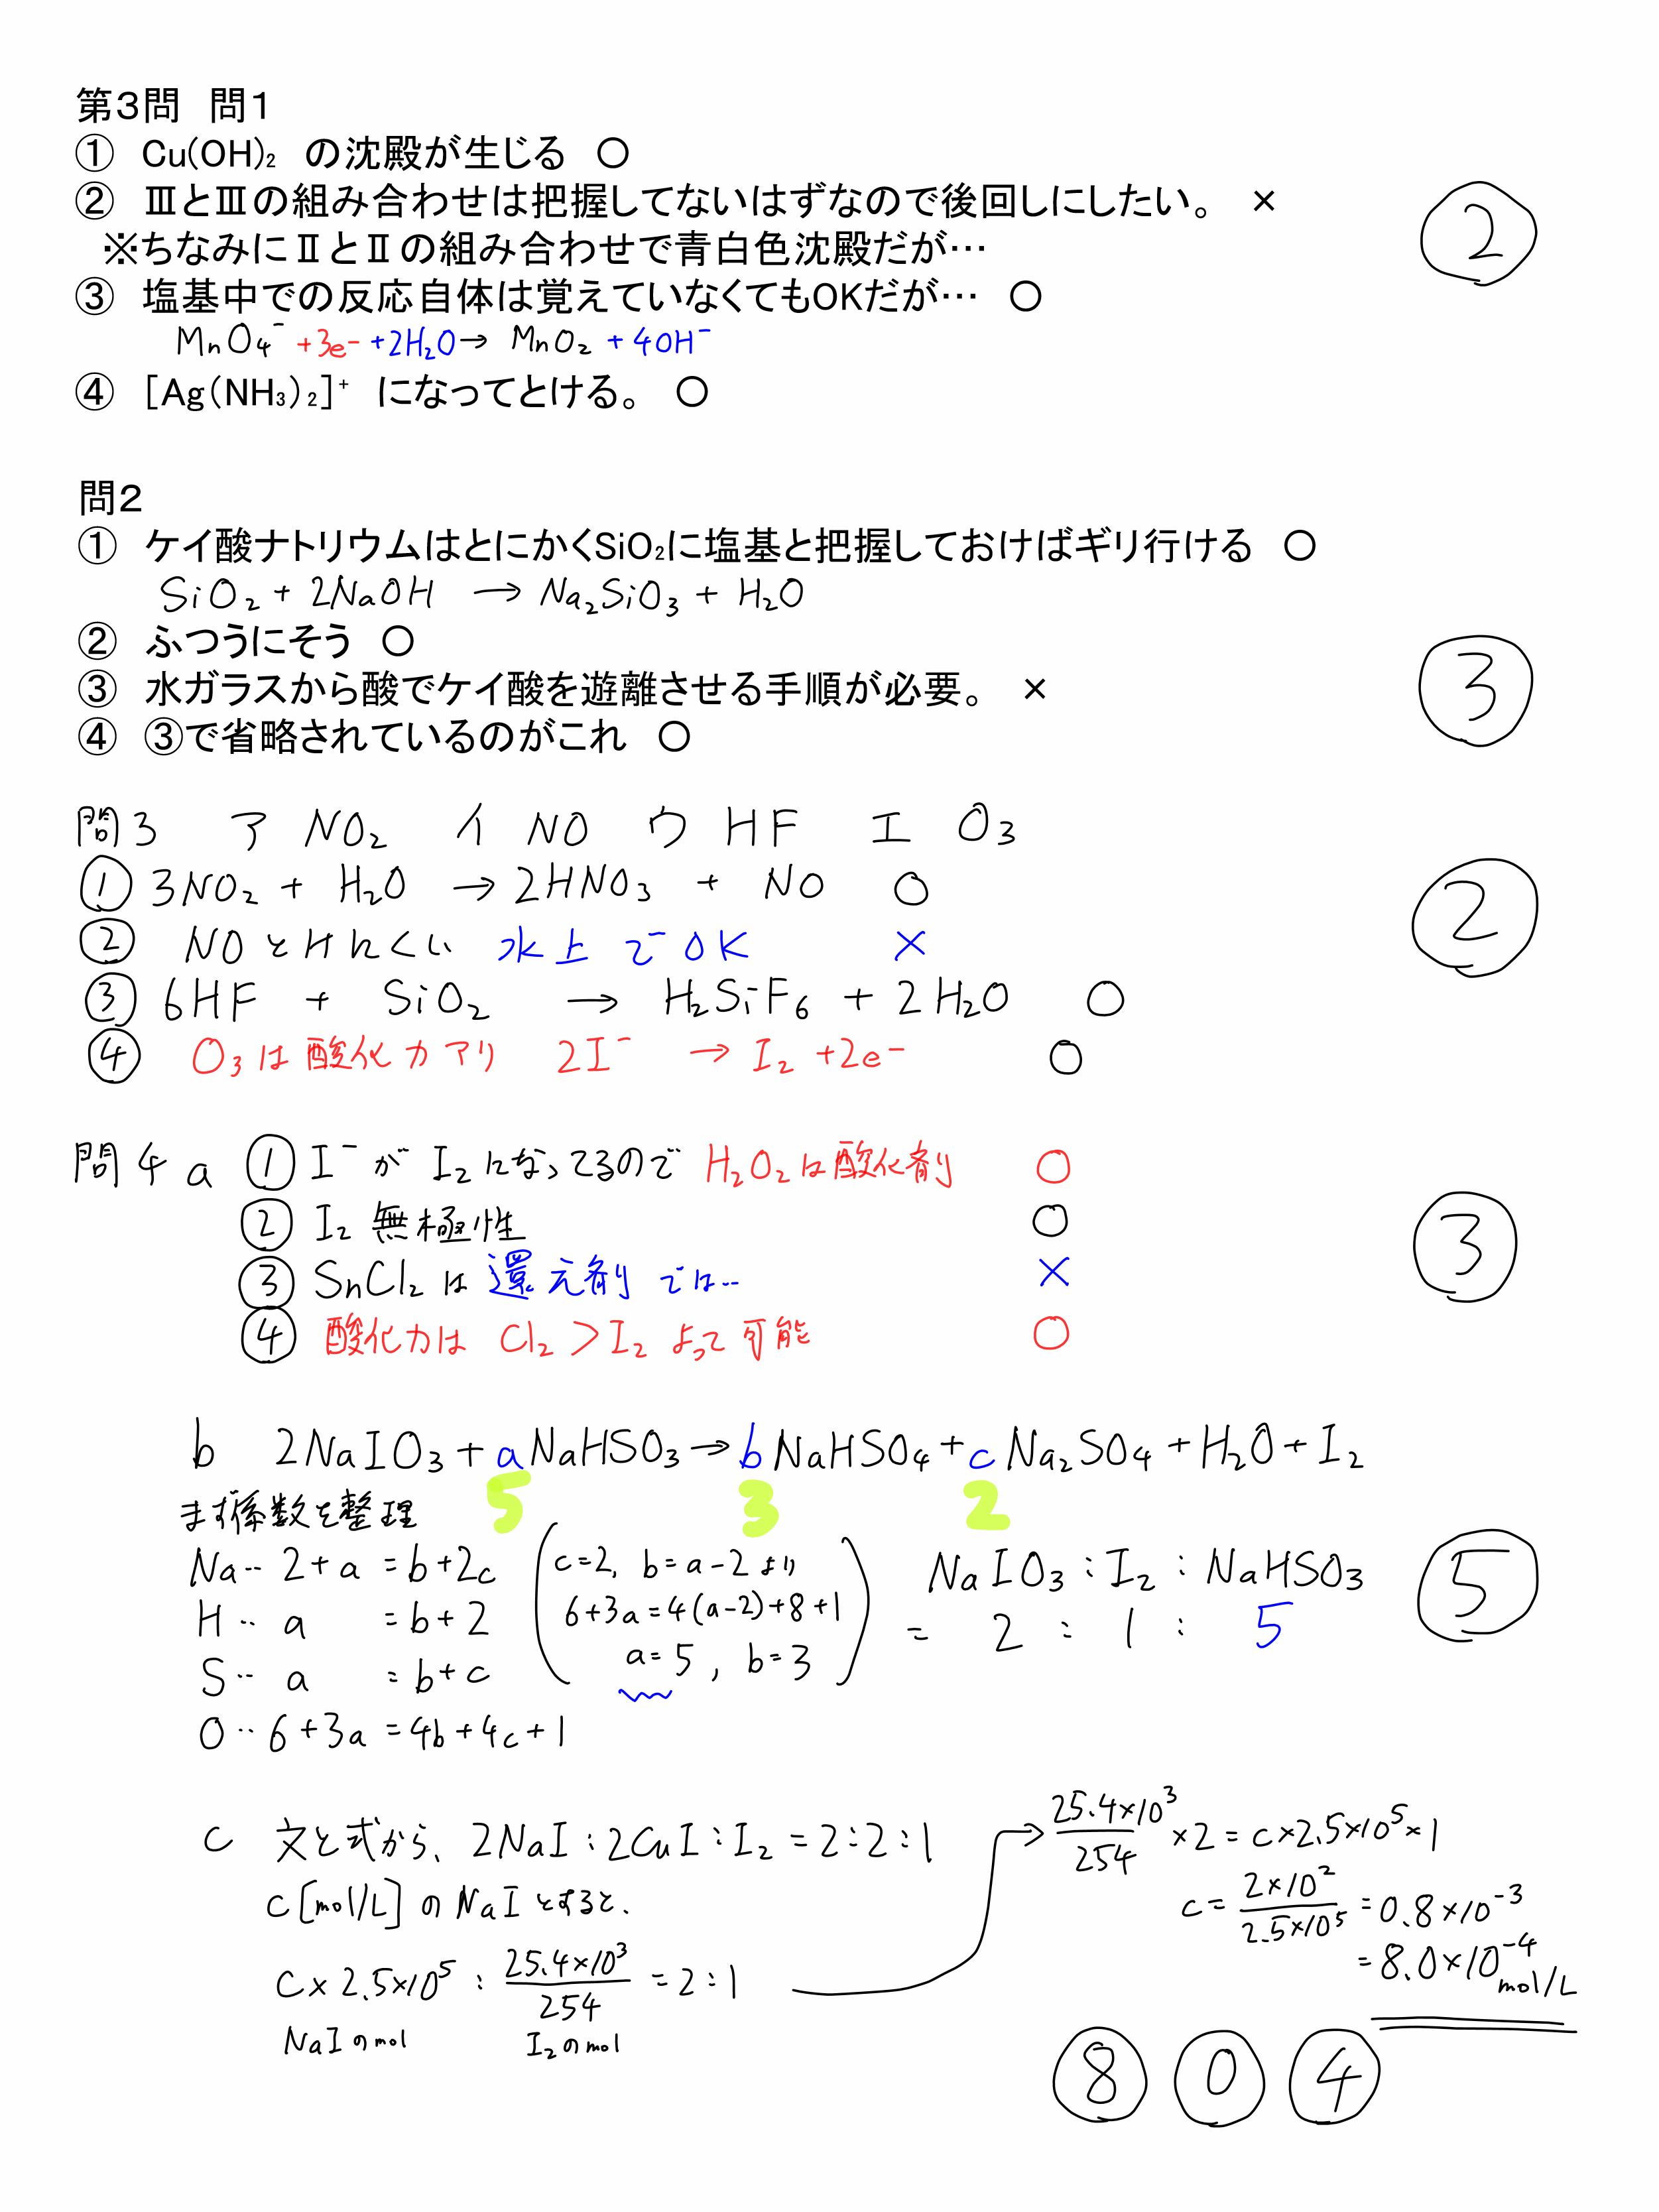 第3問　問1
①　Cu(OH)₂　の沈殿が生じる　○
②　ⅢとⅢの組み合わせは把握してないはずなので後回しにしたい。　×
※ちなみにⅡとⅡの組み合わせで青白色沈殿だが…
②
③　塩基中での反応自体は覚えていなくてもOKだが…　○
MnO₄⁻ +3e⁻ +2H₂O → MnO₂ + 4OH⁻
④　[Ag(NH₃)₂]⁺　になってとける。　○
問2
①　ケイ酸ナトリウムはとにかくSiO₂に塩基と把握しておけばギリ行ける　○
SiO₂ + 2NaOH → Na₂SiO₃ + H₂O
②　ふつうにそう　○
③　水ガラスから酸でケイ酸を遊離させる手順が必要。　×
③
④　③で省略されているのがこれ　○
問3　ア NO₂　イ NO　ウ HF　エ O₃
① 3NO₂ + H₂O → 2HNO₃ + NO　○
② NOとけにくい 水上でOK　×
②
③ 6HF + SiO₂ → H₂SiF₆ + 2H₂O　○
④ O₃は酸化力アリ　2I⁻ → I₂ +2e⁻　○
問4 a ① I⁻が I₂になってるので H₂O₂は酸化剤　○
② I₂ 無極性　○
③ SnCl₂は還元剤では…　×
③
④ 酸化力は Cl₂ > I₂ よって可能　○
b　2NaIO₃ + aNaHSO₃ → bNaHSO₄ + cNa₂SO₄ + H₂O + I₂
5　3　2
まず係数を整理
Na… 2+a = b+2c
H… a = b+2
S… a = b+c
O… 6+3a = 4b+4c+1
c=2, b=a-2より
6+3a=4(a-2)+8+1
a=5, b=3
NaIO₃ : I₂ : NaHSO₃
= 2 : 1 : 5
⑤
c　文と式から、2NaI : 2CuI : I₂ = 2 : 2 : 1
c[mol/L]のNaIとすると、
c×2.5×10⁵ : 25.4×10³/254 = 2 : 1
NaIのmol　I₂のmol
25.4×10³/254 ×2 = c×2.5×10⁵×1
c = 2×10²/2.5×10⁵ = 0.8×10⁻³
= 8.0×10⁻⁴ mol/L
⑧ ⓪ ④